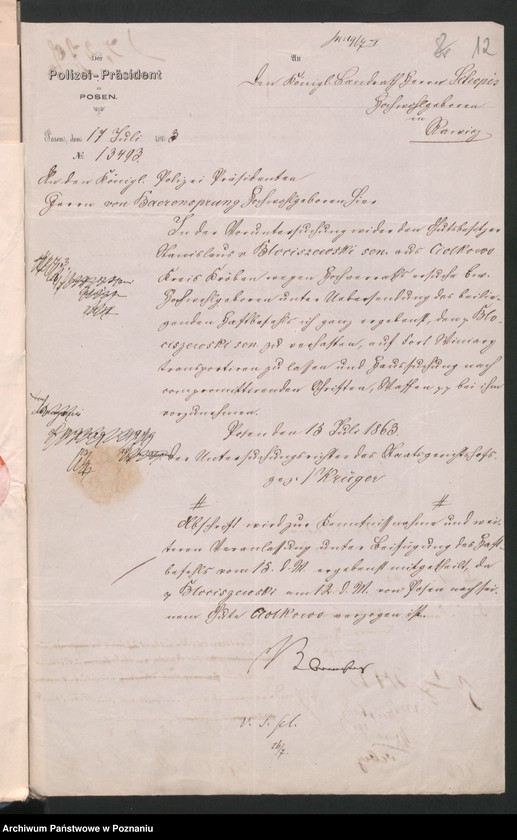 12
Der
Polizei-Präsident
zu
POSEN.
An
den Königl. Landrath Herrn Schopis
Hochwohlgeboren
in
Rawicz
Posen, den 17 Juli 1863
№ 13493
An den Königl. Polizei Präsidenten
Herrn von Baerensprung Hochwohlgeboren Hier
In der Voruntersuchung wider den Gutsbesitzer
Stanislaus v Błociszewski sen. aus Ciołkowo
Kreis Kröben wegen Hochverraths ersuche Ew.
Hochwohlgeboren unter Uebersendung des beilie-
genden Haftbefehls ich ganz ergebenst, den p. Bło-
ciszewski sen. zu verhaften, auf Fort Winiary
transportiren zu lassen und Haussuchung nach
compromittirenden Schriften, Waffen pp bei ihm
vorzunehmen.
Posen den 15 Juli 1863
Der Untersuchungsrichter des Staatsgerichtshofs.
gez. Krüger
Abschrift wird zur Kenntnißnahme und wei-
teren Veranlassung unter Beifügung des Haft-
befehls vom 15. d. M. ergebenst mitgetheilt, da
p Błociszewski am 12. d. M. von Posen nach sei-
nem Gute Ciołkowo verzogen ist.
26/7.
Archiwum Państwowe w Poznaniu